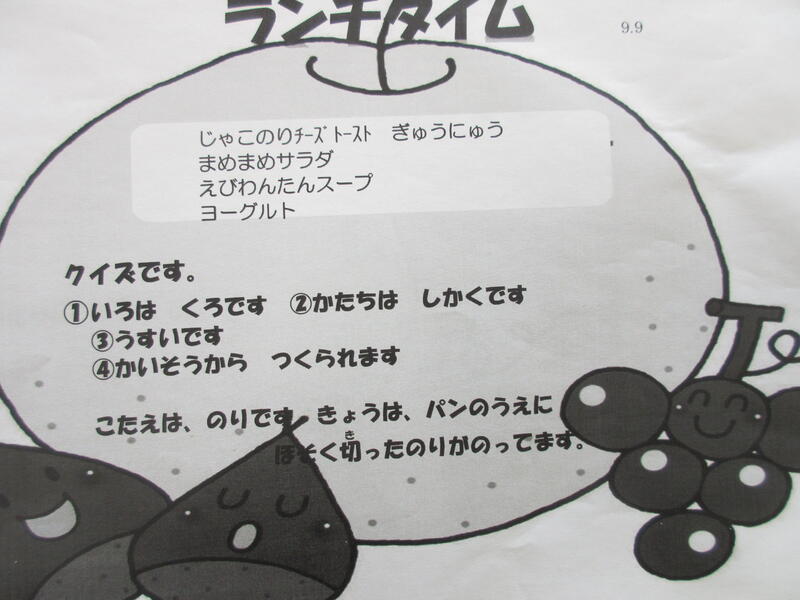 ランチタイム
9.9
じゃこのりﾁｰｽﾞﾄｰｽﾄ　ぎゅうにゅう
まめまめサラダ
えびわんたんスープ
ヨーグルト
クイズです。
①いろは　くろです　②かたちは　しかくです
③うすいです
④かいそうから　つくられます
こたえは、のりです。きょうは、パンのうえに
ほそく切ったのりがのってます。
き